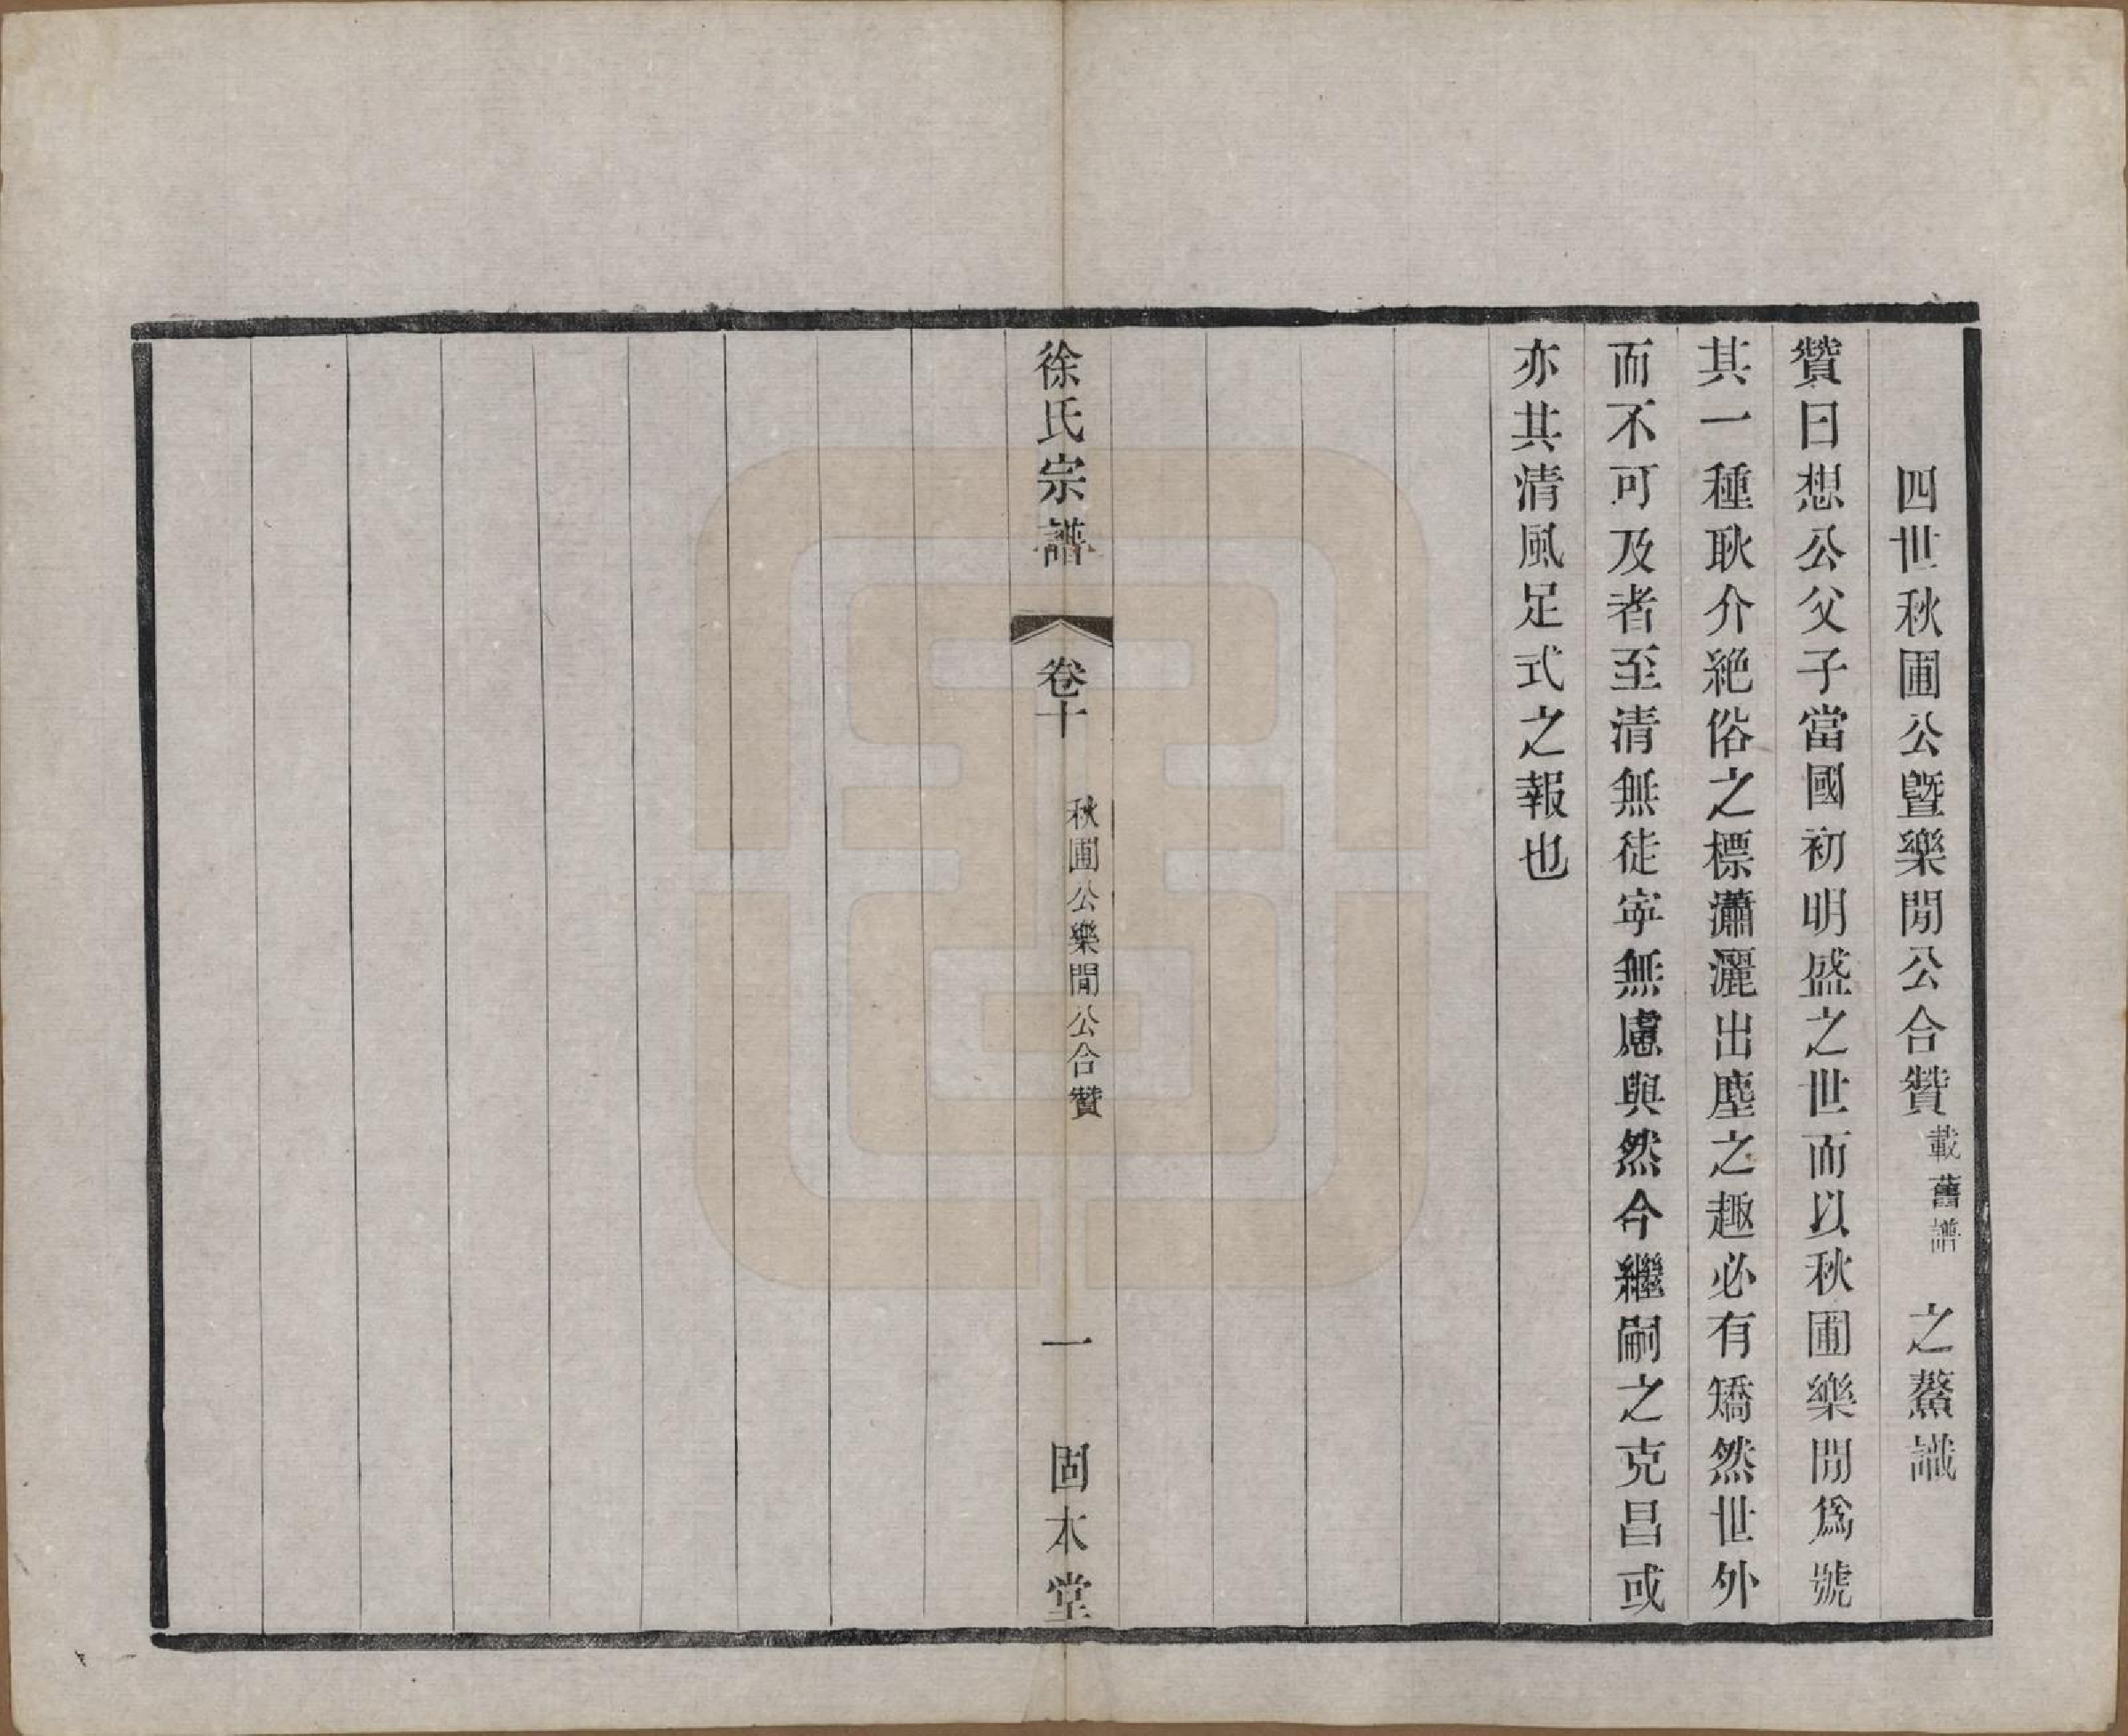 四世秋圃公曁樂閒公合贊載舊譜　之鰲識
贊曰想公父子當國初明盛之世而以秋圃樂閒爲號
其一種耿介絶俗之標瀟灑出塵之趣必有矯然世外
而不可及者至清無徒寧無慮與然今繼嗣之克昌或
亦其清風足式之報也
徐氏宗譜　卷十　秋圃公樂閒公合贊　一　固本堂